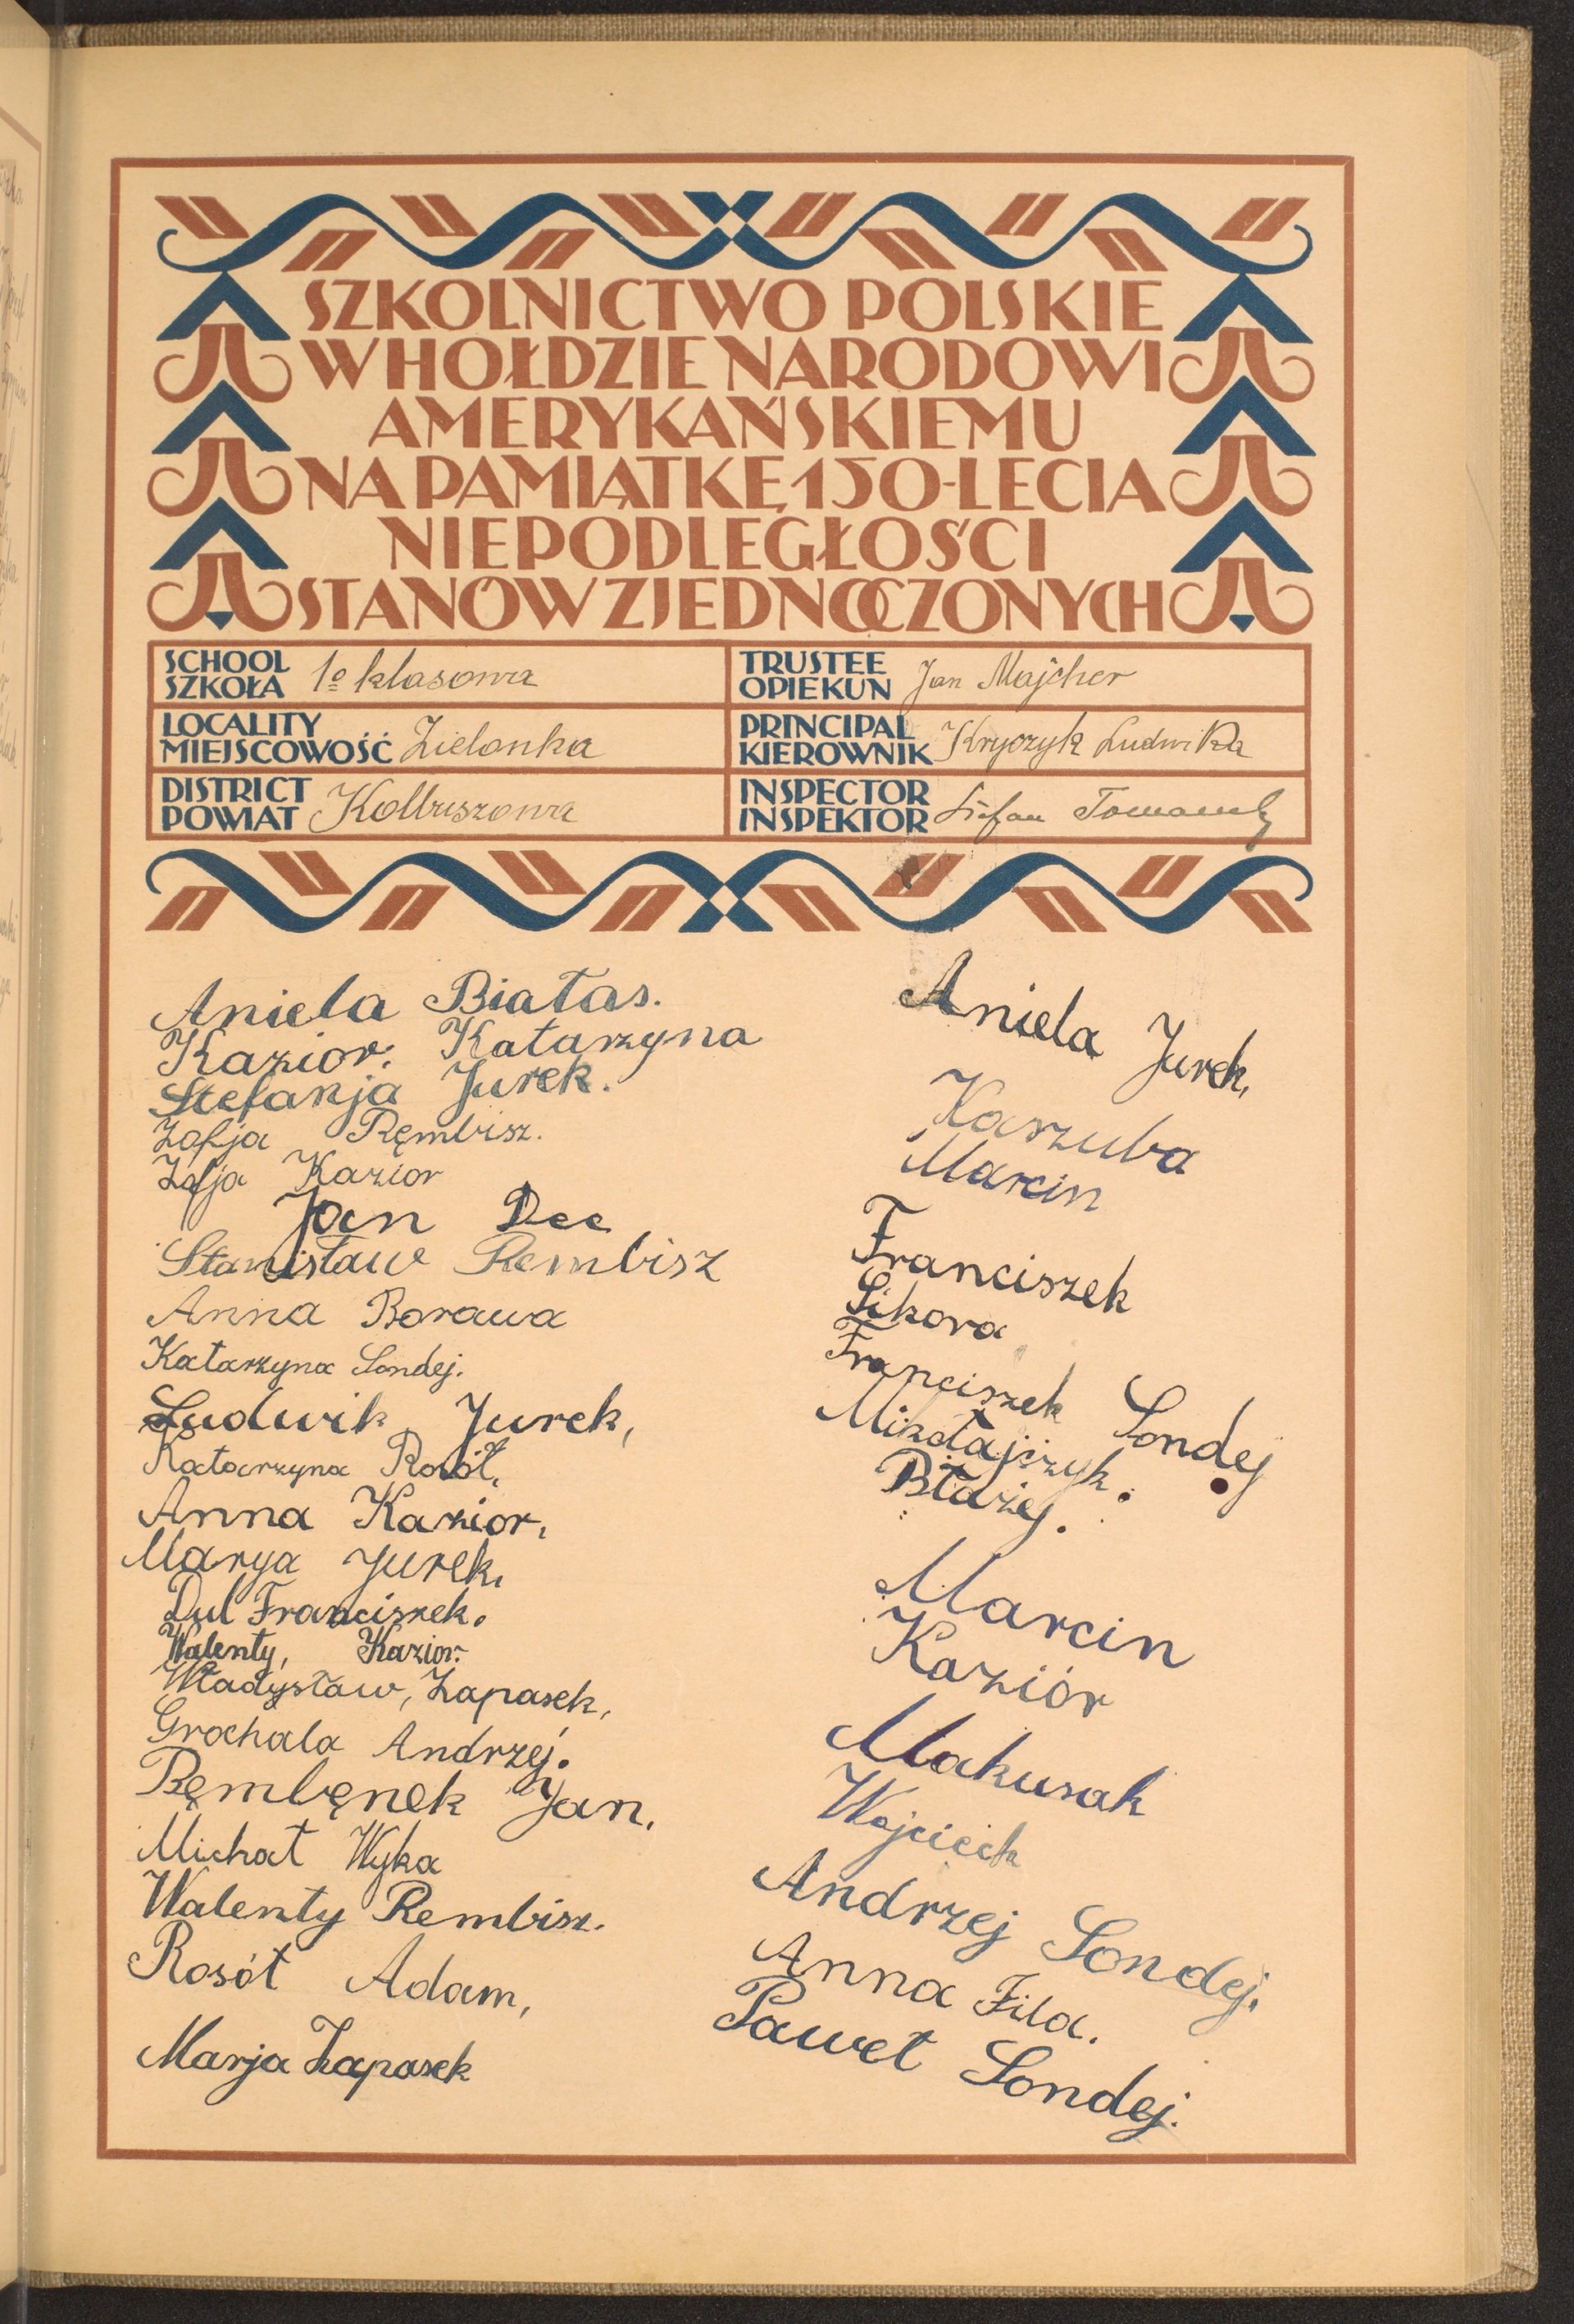 SZKOLNICTWO POLSKIE
W HOŁDZIE NARODOWI
AMERYKAŃSKIEMU
NA PAMIĄTKĘ 150-LECIA
NIEPODLEGŁOŚCI
STANÓW ZJEDNOCZONYCH
SCHOOL
SZKOŁA 1o klasowa
TRUSTEE
OPIEKUN Jan Majcher
LOCALITY
MIEJSCOWOŚĆ Zielonka
PRINCIPAL
KIEROWNIK Kryczyk Ludwika
DISTRICT
POWIAT Kolbuszowa
INSPECTOR
INSPEKTOR Stefan
Aniela Białas.
Kazior. Katarzyna
Stefanja Jurek.
Zofja Rembisz.
Zofja Kazior
Jan Dec
Stanisław Rembisz
Anna Borawa
Katarzyna Sondej.
Ludwik Jurek,
Katarzyna Rosół,
Anna Kazior,
Marya Jurek,
Dul Franciszek.
Walenty, Kazior.
Władysław, Zapasek,
Grochala Andrzej.
Rębmęnek Jan,
Michał Wyka
Walenty Rembisz.
Rosół Adam,
Marja Zapasek
Aniela Jurek,
Kaszuba
Marcin
Franciszek
Sikora
Franciszek Sondej
Mikołajczyk.
Błażej.
Marcin
Kaziór
Makusak
Wojciech
Andrzej Sondej.
Anna Fila.
Paweł Sondej.